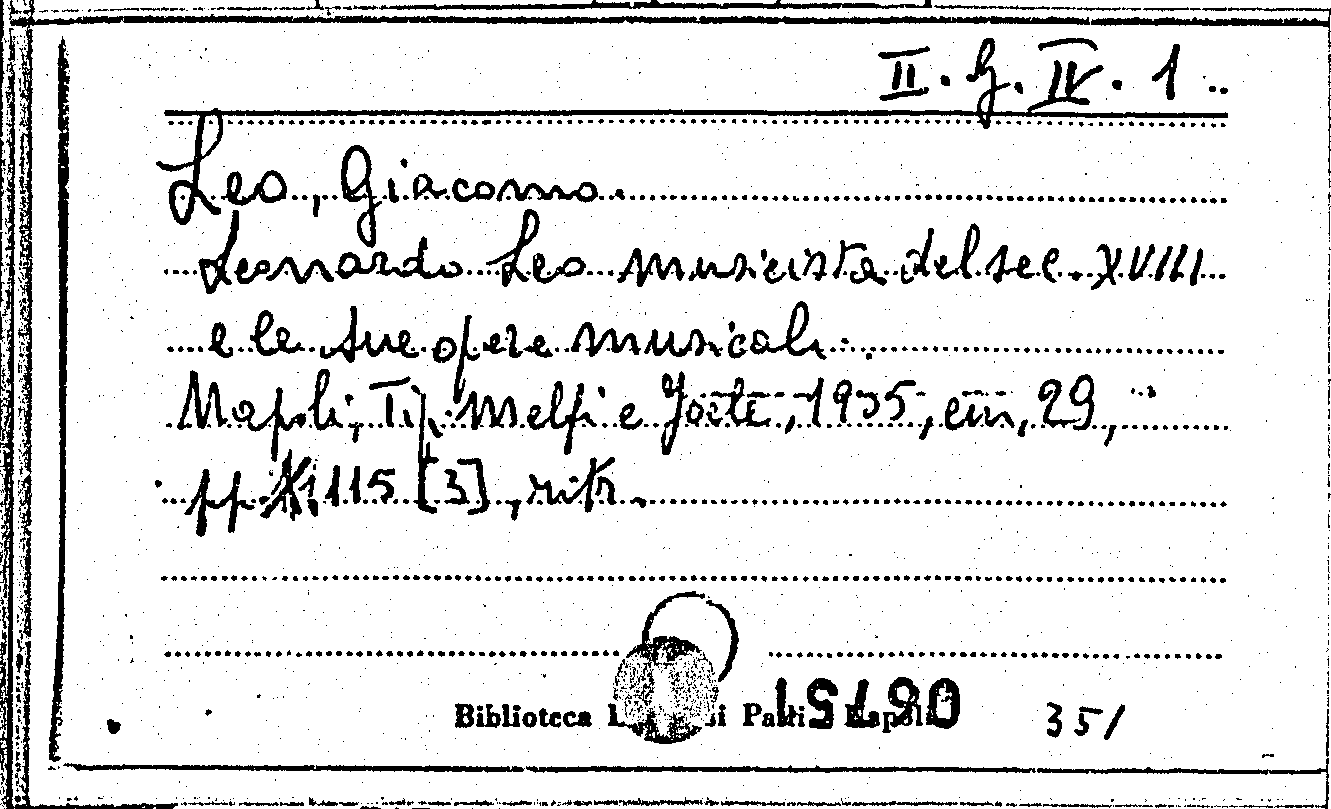 II. G. IV. 1..
Leo, Giacomo.
Leonardo Leo musicista del sec. XVIII
e le sue opere musicali.
Napoli, Tip. Melfi e Joele, 1935, cm, 29,
pp. 115 [3], ritr.
Biblioteca Napoli
351